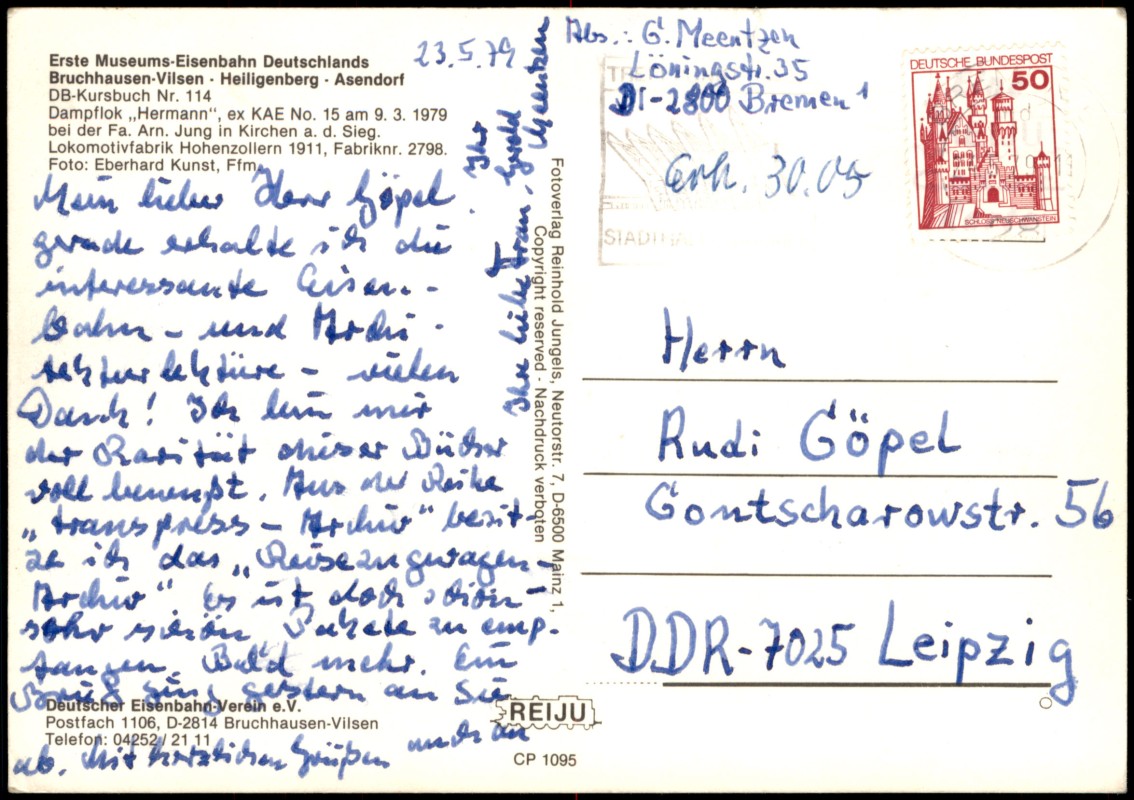 Erste Museums-Eisenbahn Deutschlands
Bruchhausen-Vilsen · Heiligenberg · Asendorf
DB-Kursbuch Nr. 114
Dampflok „Hermann", ex KAE No. 15 am 9. 3. 1979
bei der Fa. Arn. Jung in Kirchen a. d. Sieg.
Lokomotivfabrik Hohenzollern 1911, Fabriknr. 2798.
Foto: Eberhard Kunst, Ffm.
23.5.79
Mein lieber Herr Göpel
gerade erhalte ich die
interessante Eisen-
bahn- und Archi-
tekturlektüre - vielen
Dank! Ich bin mir
der Rarität dieser Bücher
voll bewußt. Aus der Reihe
„transpress-Archiv" besit-
ze ich das „Reisezugwagen-
Archiv". Es ist doch schon
sehr schön, Pakete zu emp-
fangen. Bald mehr. Ein
Brief ging gestern an Sie
ab. Mit herzlichen Grüßen auch an
Ihre liebe Frau,
Ihr Gerold
Meentzen
Deutscher Eisenbahn-Verein e.V.
Postfach 1106, D-2814 Bruchhausen-Vilsen
Telefon: 04252 / 21 11
Fotoverlag Reinhold Jungels, Neutorstr. 7, D-6500 Mainz 1,
Copyright reserved - Nachdruck verboten
REIJU
CP 1095
Abs.: G. Meentzen
Löningstr. 35
D-2800 Bremen 1
Erh. 30.05
STADTHA
DEUTSCHE BUNDESPOST
50
SCHLOSS NEUSCHWANSTEIN
28
Herrn
Rudi Göpel
Gontscharowstr. 56
DDR-7025 Leipzig